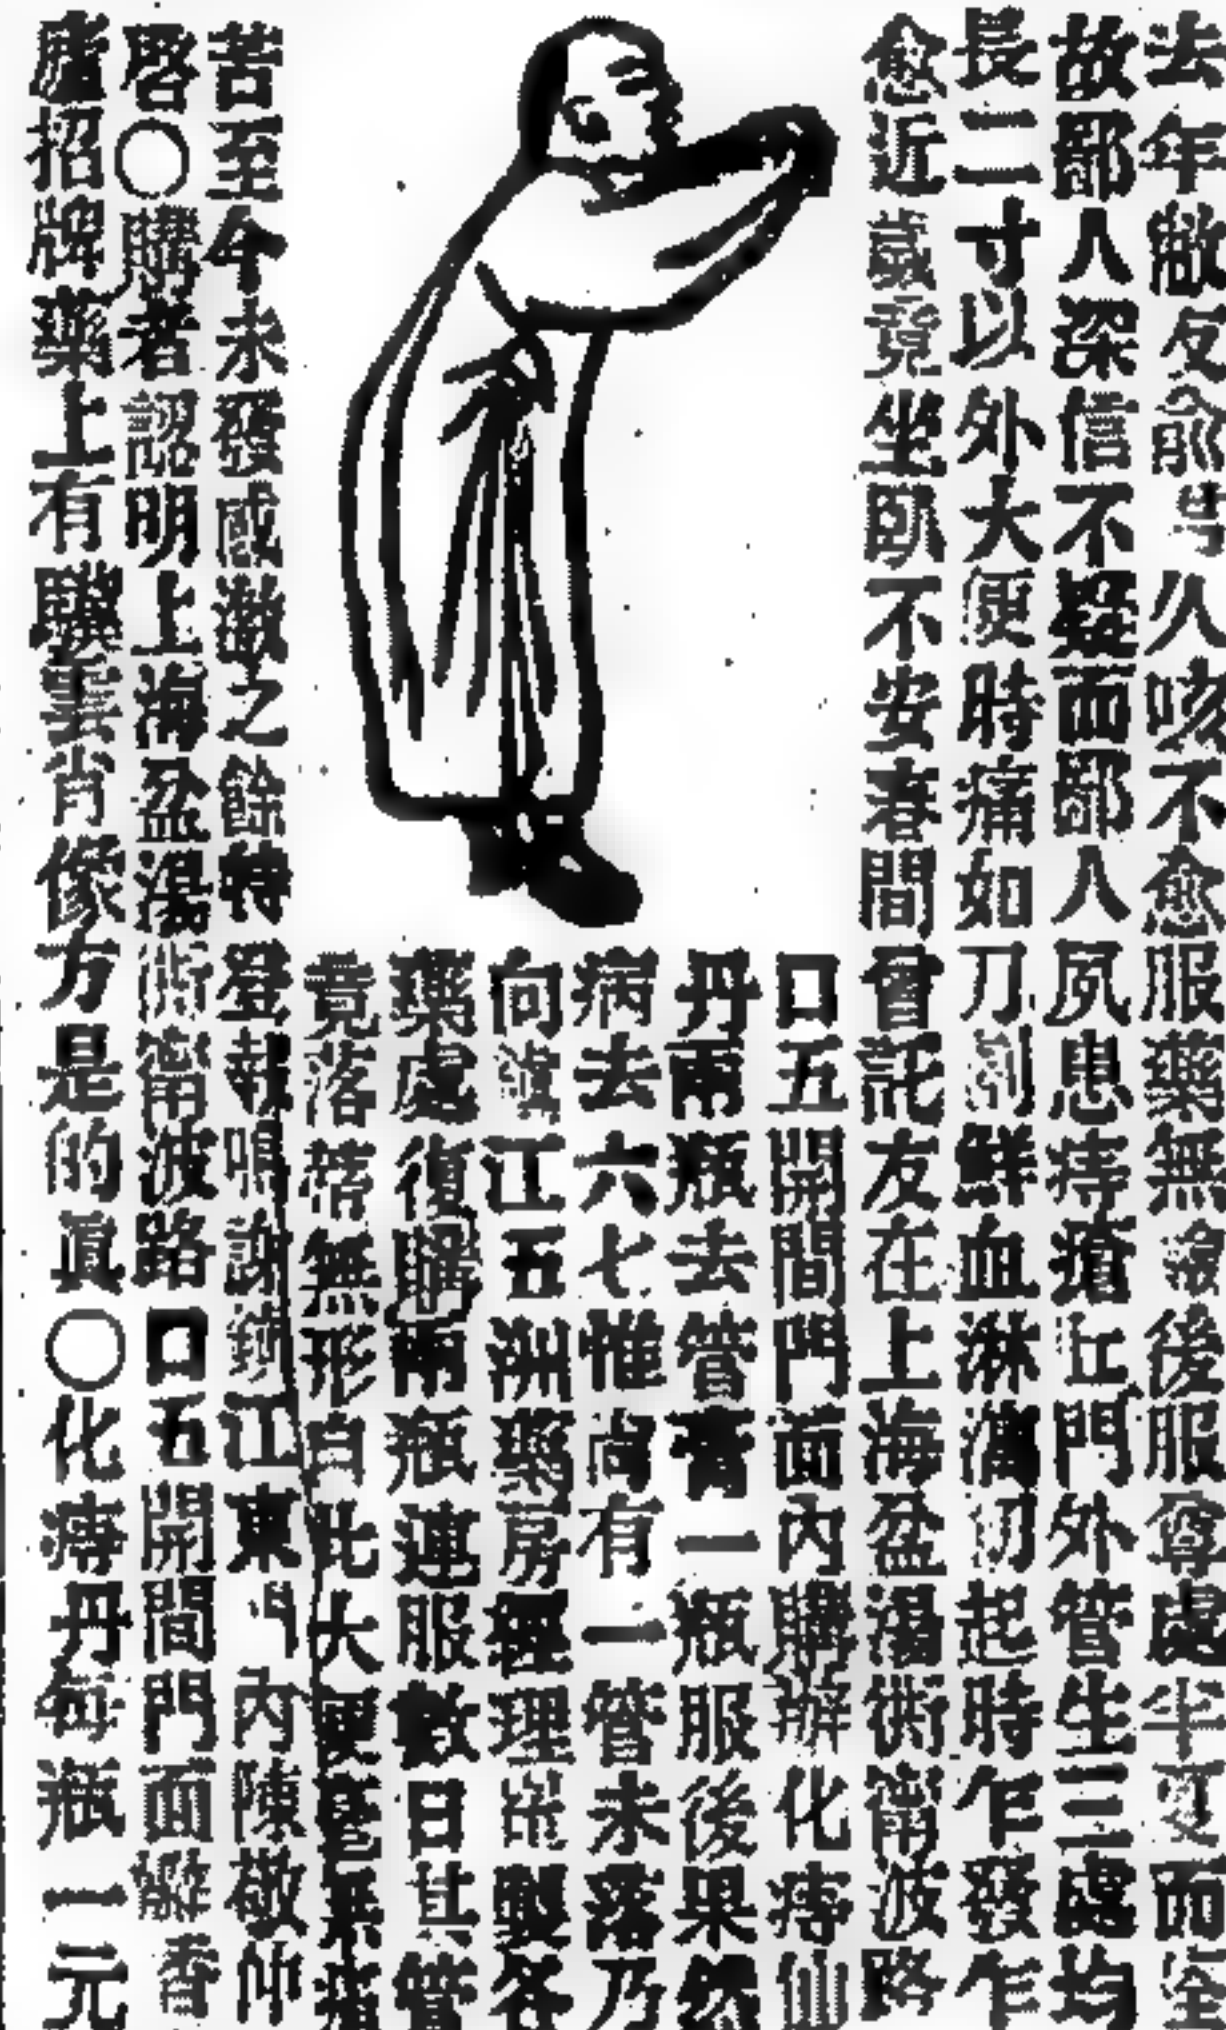 去年敝友俞 久咳不愈服藥無 後服 處半 而全
故鄙人深信不疑而鄙人夙患痔瘡肛門外管生三處均
長二寸以外大便時痛如刀割鮮血淋漓初起時乍發乍
愈近歲竟坐臥不安春間曾託友在上海盆湯衖甯波路
口五開間門面內購辦化痔仙
丹兩瓶去管膏一瓶服後果然
病去六七惟尚有一管未落乃
向鎮江五洲藥房經理 製各
藥處復購兩瓶連服數日其管
竟落 無形自此大便毫無痛
苦至今未發感激之餘特登報鳴謝鎮江東門內陳敬仲
啓〇購者認明上海盆湯衖甯波路口五開間門面 香
廬招牌藥上有驥雲肖像方是的眞〇化痔丹每瓶一元